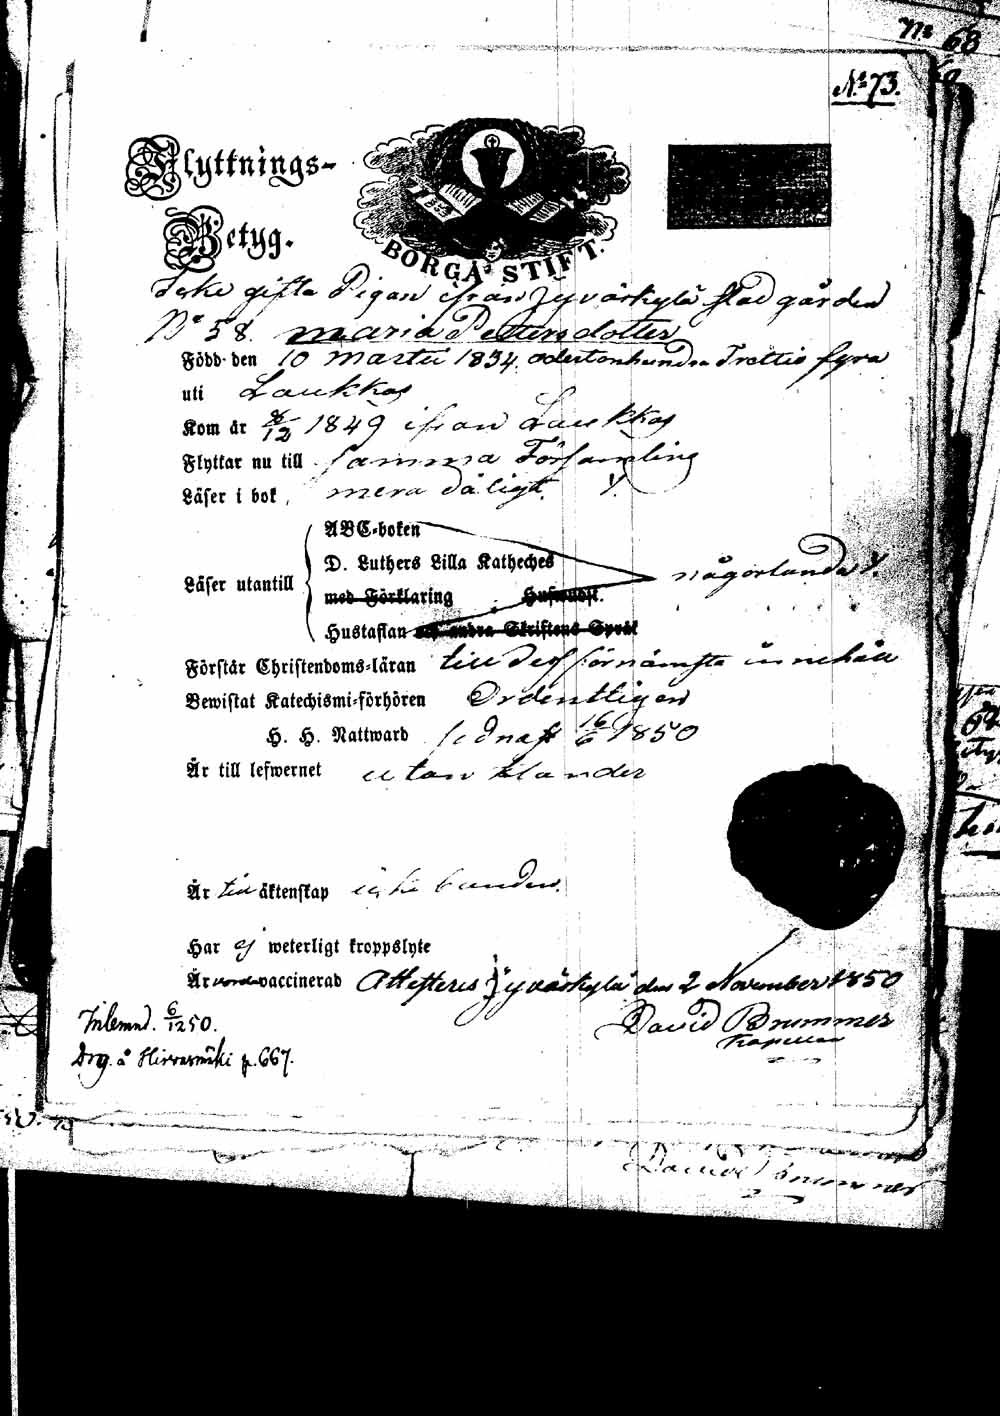 No 68
No 73.
Flyttnings-
Betyg.
BORGÅ STIFT.
Icke gifta Pigan ifrån Jyväskylä stad gården
No 58. Maria Pettersdotter
Född den 10 Martii 1834. adertonhundra Trettio fyra
uti Laukkas
Kom år 8/12 1849 ifrån Laukkas
Flyttar nu till samma Församling
Läser i bok, mera dåligt.
ABC-boken
D. Luthers Lilla Katheches
Läser utantill någorlunda
med Förklaring Husandst.
Hustaflan och andra Skriftens Språk
Förstår Christendoms-läran till dess förnämsta innehåll
Bewistat Katechismi-förhören Ordentligen
H. H. Nattward sednast 16/6 1850
Är till lefwernet utan klander
Är till äktenskap icke bunden.
Har ej weterligt kroppslyte
Är vorden vaccinerad Attesteres Jyväskylä den 2 November 1850
David Brummer
Kapellan
Inlemnd. 6/12 50.
Drg. å Hirvasmäki p. 667.
David Brummer